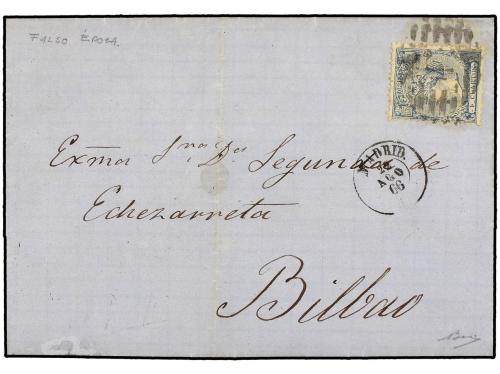 FALSO ÉPOCA.
MADRID
AGO
66
Exma Sra. Da. Segunda de
Echezarreta
Bilbao